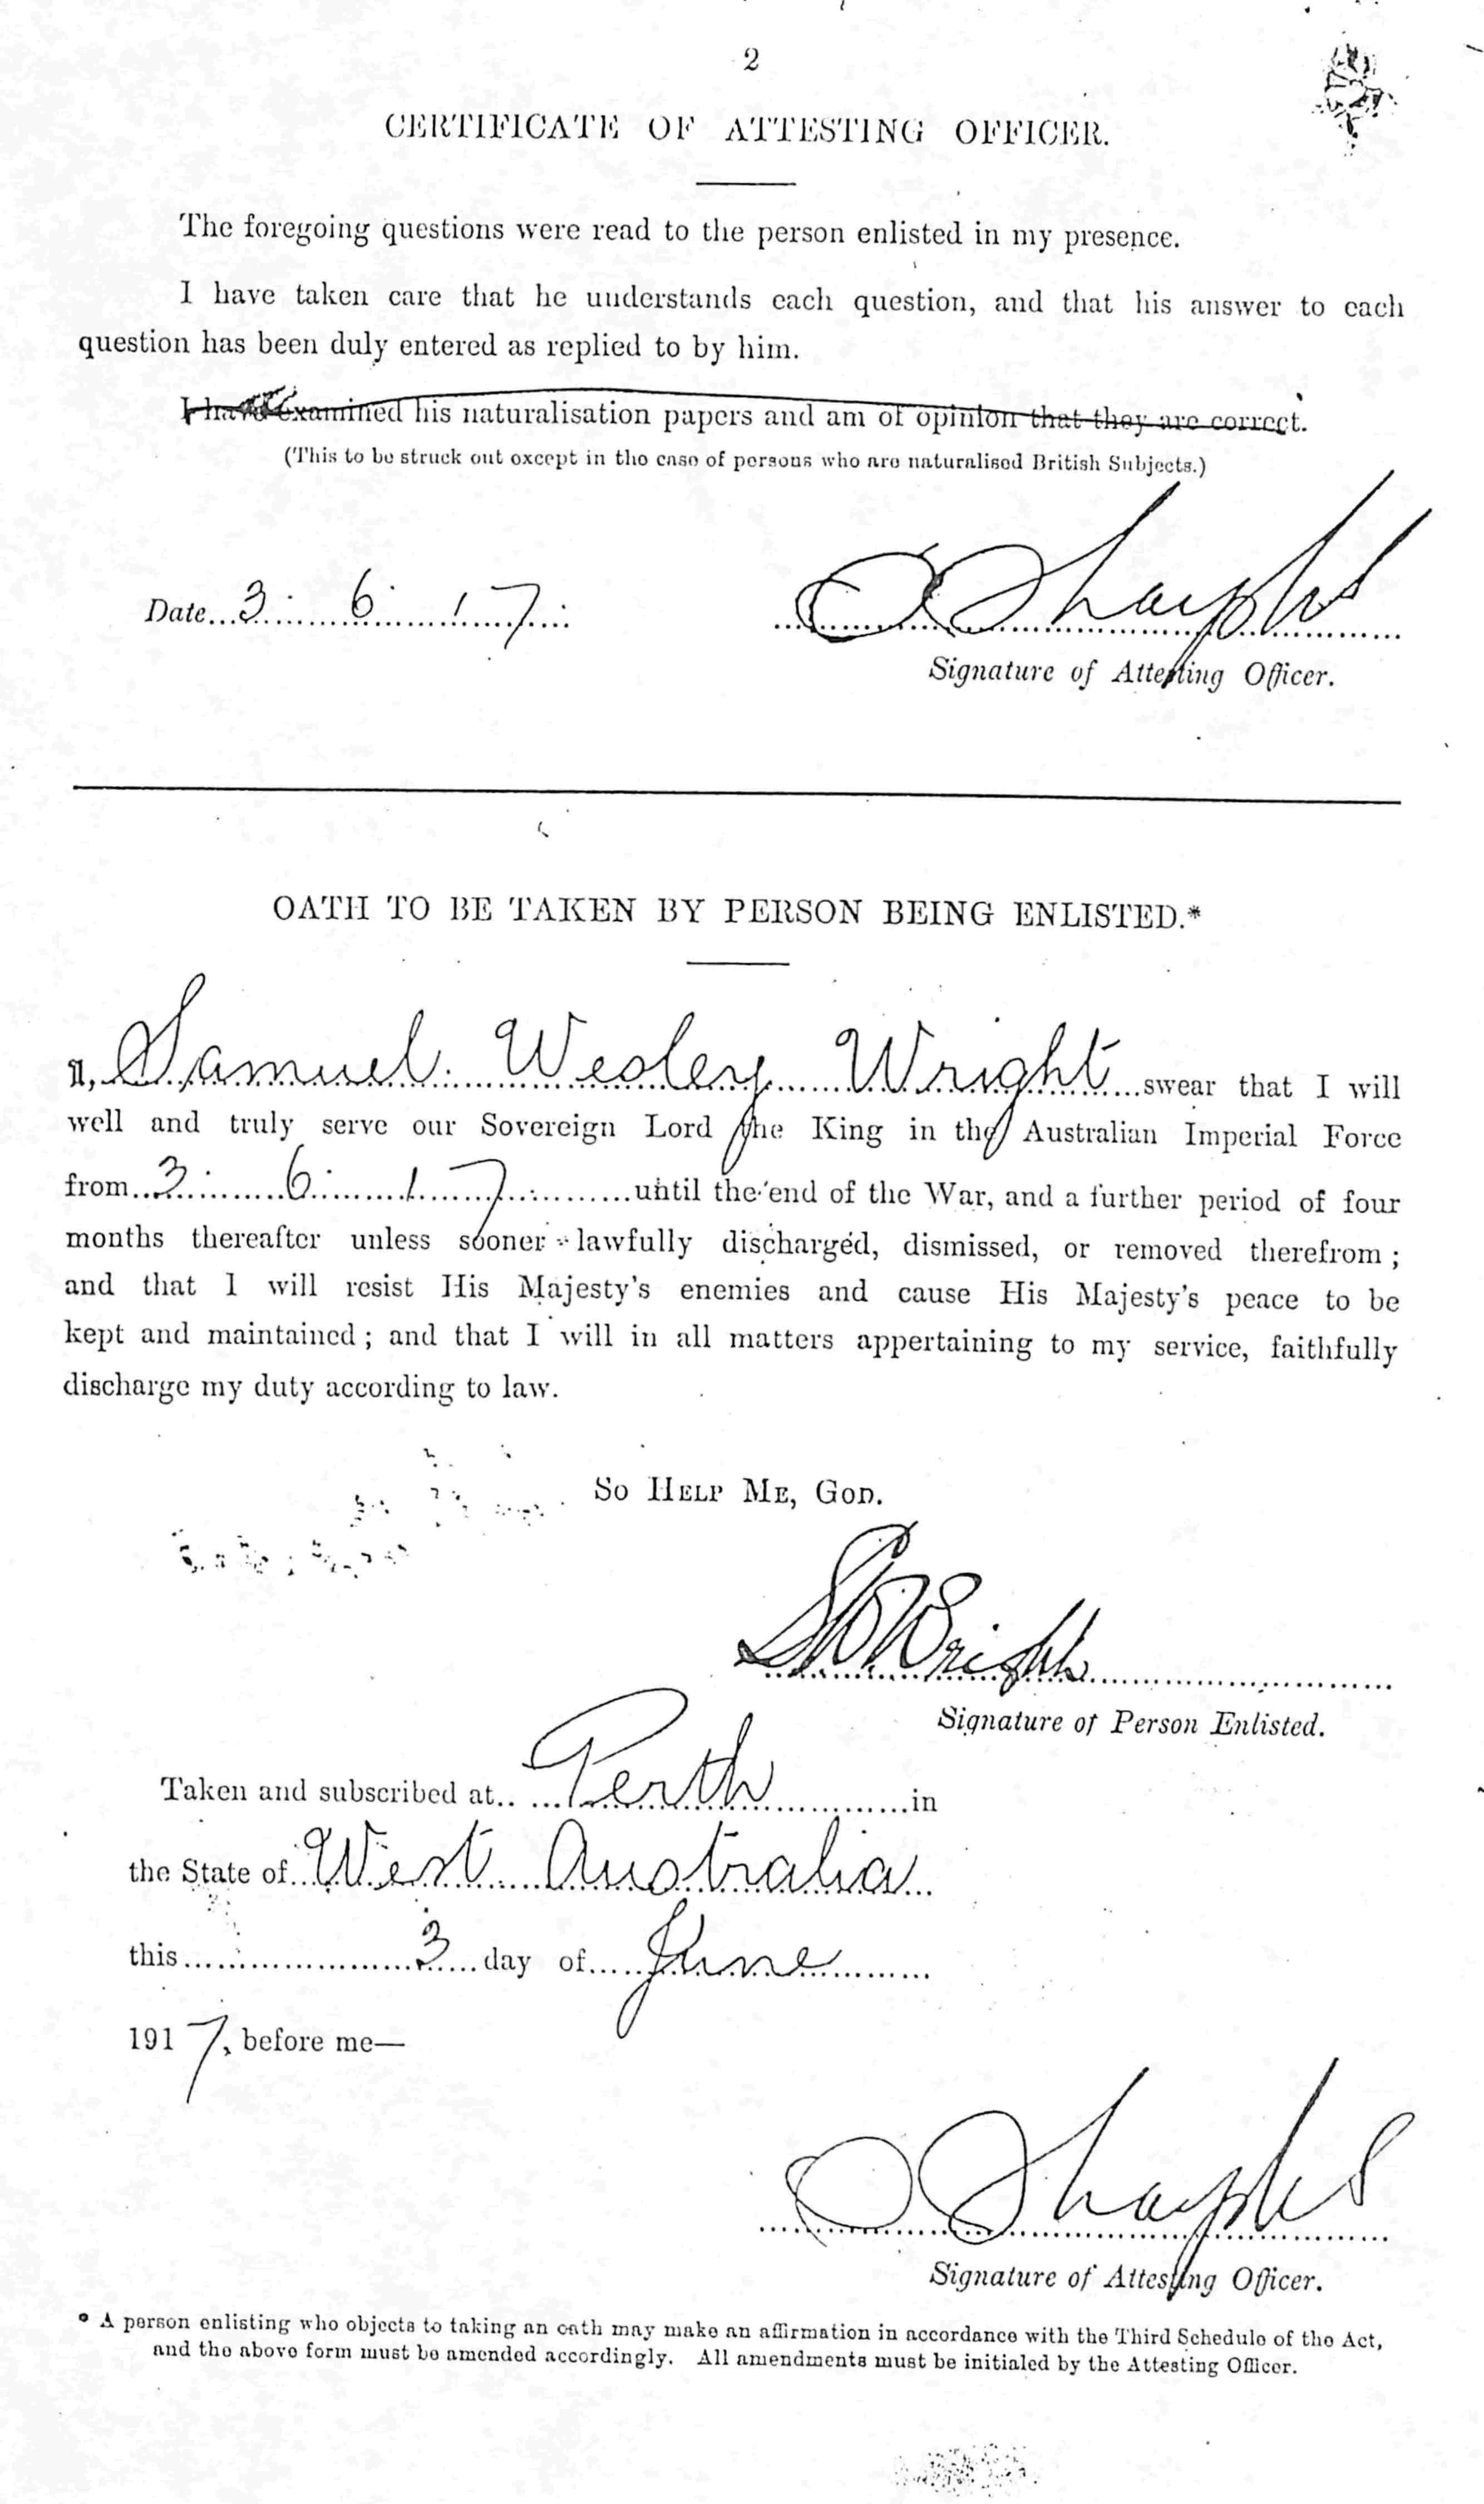 2
CERTIFICATE OF ATTESTING OFFICER.
The foregoing questions were read to the person enlisted in my presence.
I have taken care that he understands each question, and that his answer to each
question has been duly entered as replied to by him.
I have examined his naturalisation papers and am of opinion that they are correct.
(This to be struck out except in the case of persons who are naturalised British Subjects.)
Date 3. 6. 17.
Signature of Attesting Officer.
OATH TO BE TAKEN BY PERSON BEING ENLISTED.*
I, Samuel Wesley Wright swear that I will
well and truly serve our Sovereign Lord the King in the Australian Imperial Force
from 3. 6. 17. until the end of the War, and a further period of four
months thereafter unless sooner lawfully discharged, dismissed, or removed therefrom;
and that I will resist His Majesty's enemies and cause His Majesty's peace to be
kept and maintained; and that I will in all matters appertaining to my service, faithfully
discharge my duty according to law.
So Help Me, God.
SW Wright
Signature of Person Enlisted.
Taken and subscribed at Perth in
the State of West Australia
this 3 day of June
1917, before me—
Signature of Attesting Officer.
* A person enlisting who objects to taking an oath may make an affirmation in accordance with the Third Schedule of the Act,
and the above form must be amended accordingly. All amendments must be initialed by the Attesting Officer.